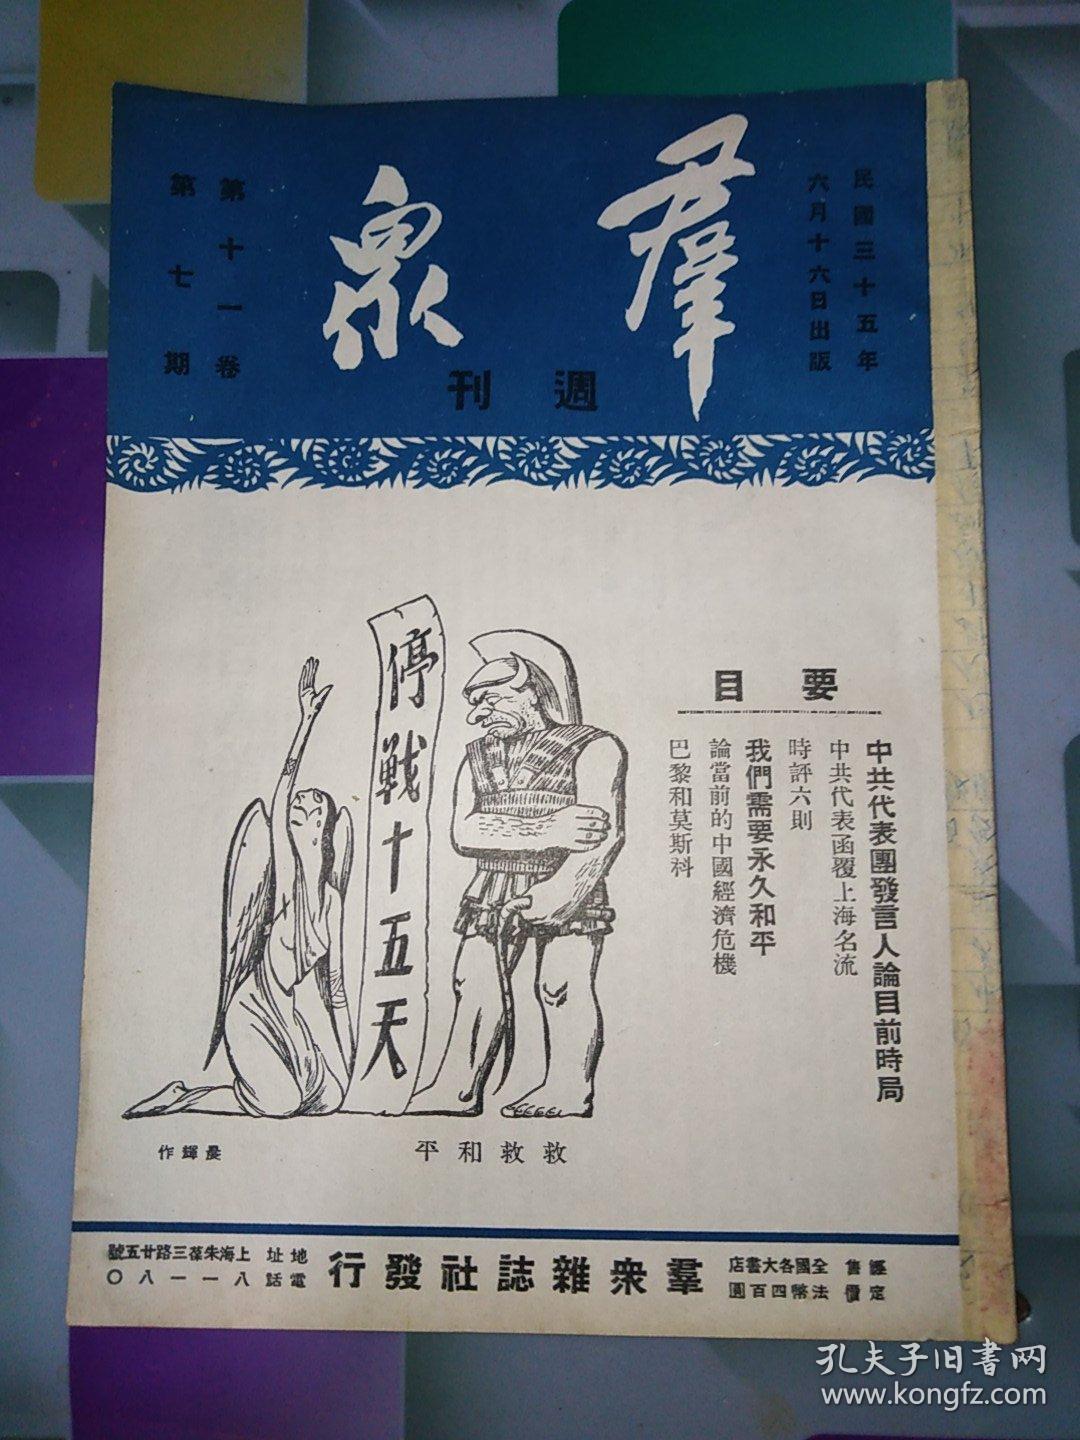 民國三十五年
六月十六日出版
羣衆
週刊
第十一卷
第七期
要目
中共代表團發言人論目前時局
中共代表函覆上海名流
時評六則
我們需要永久和平
論當前的中國經濟危機
巴黎和莫斯科
停戰十五天
救救和平
晨輝作
經售 全國各大書店
定價 法幣四百圓
羣衆雜誌社發行
地址 上海朱葆三路廿五號
電話 八一一八〇
孔夫子旧書网
www.kongfz.com